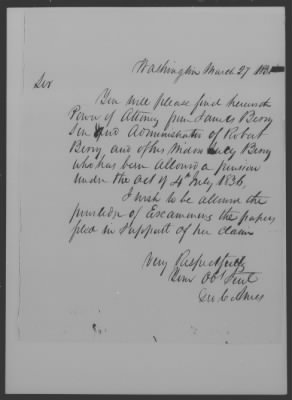 Washington March 27
Sir
You will please find herewith
Power of Attorney from James Berry
Sen and Administrator of Robert
Berry and of his Widow Lucy Berry
who has been allowed a pension
under the act of 4th July 1836,
I wish to be allowed the
privilege of Examining the papers
filed in support of her claim
Very Respectfully
Your Obt Servt
Geo C Ames